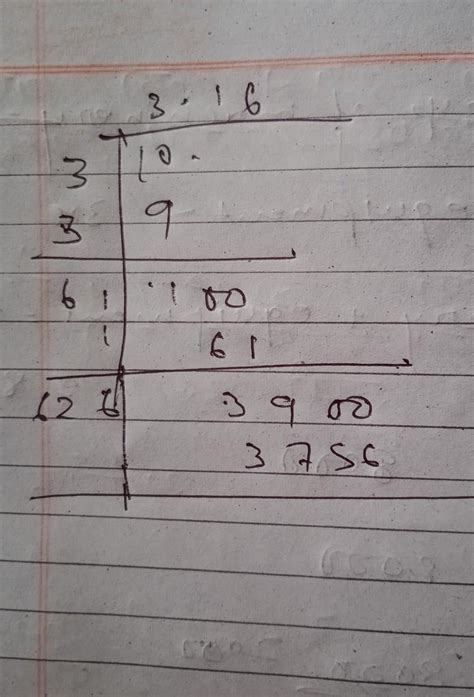 3.16
3 10.
3 9
61 100
1 61
626 3900
3756